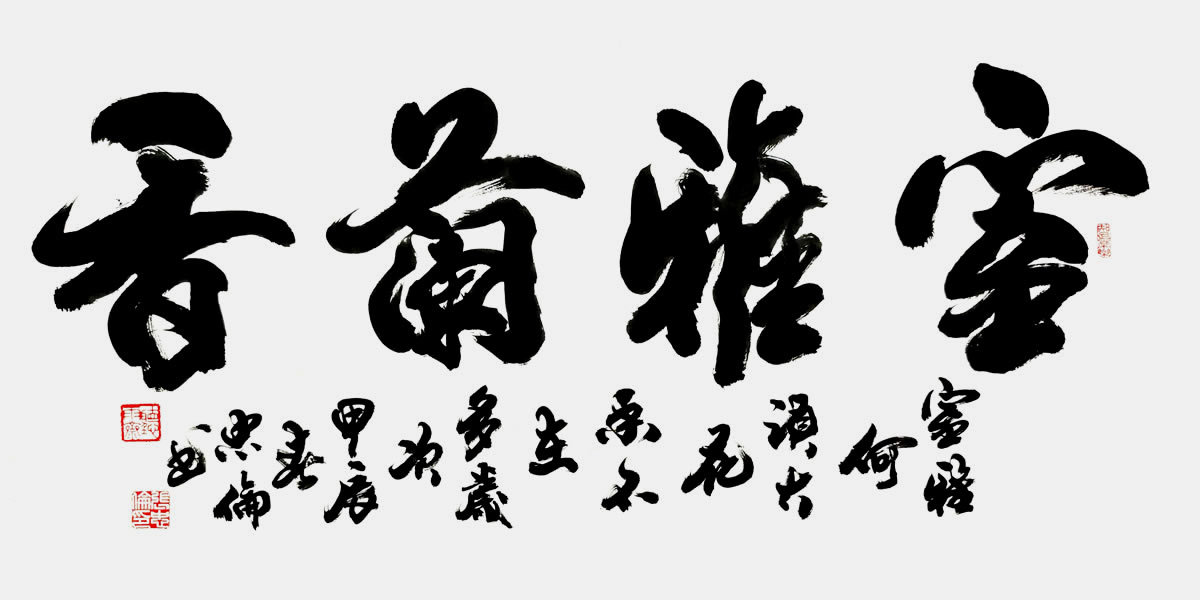 室雅蘭香
室雅
何
須大
花
香不
在
多歲
次
甲辰
春
忠倫
書
張忠倫印